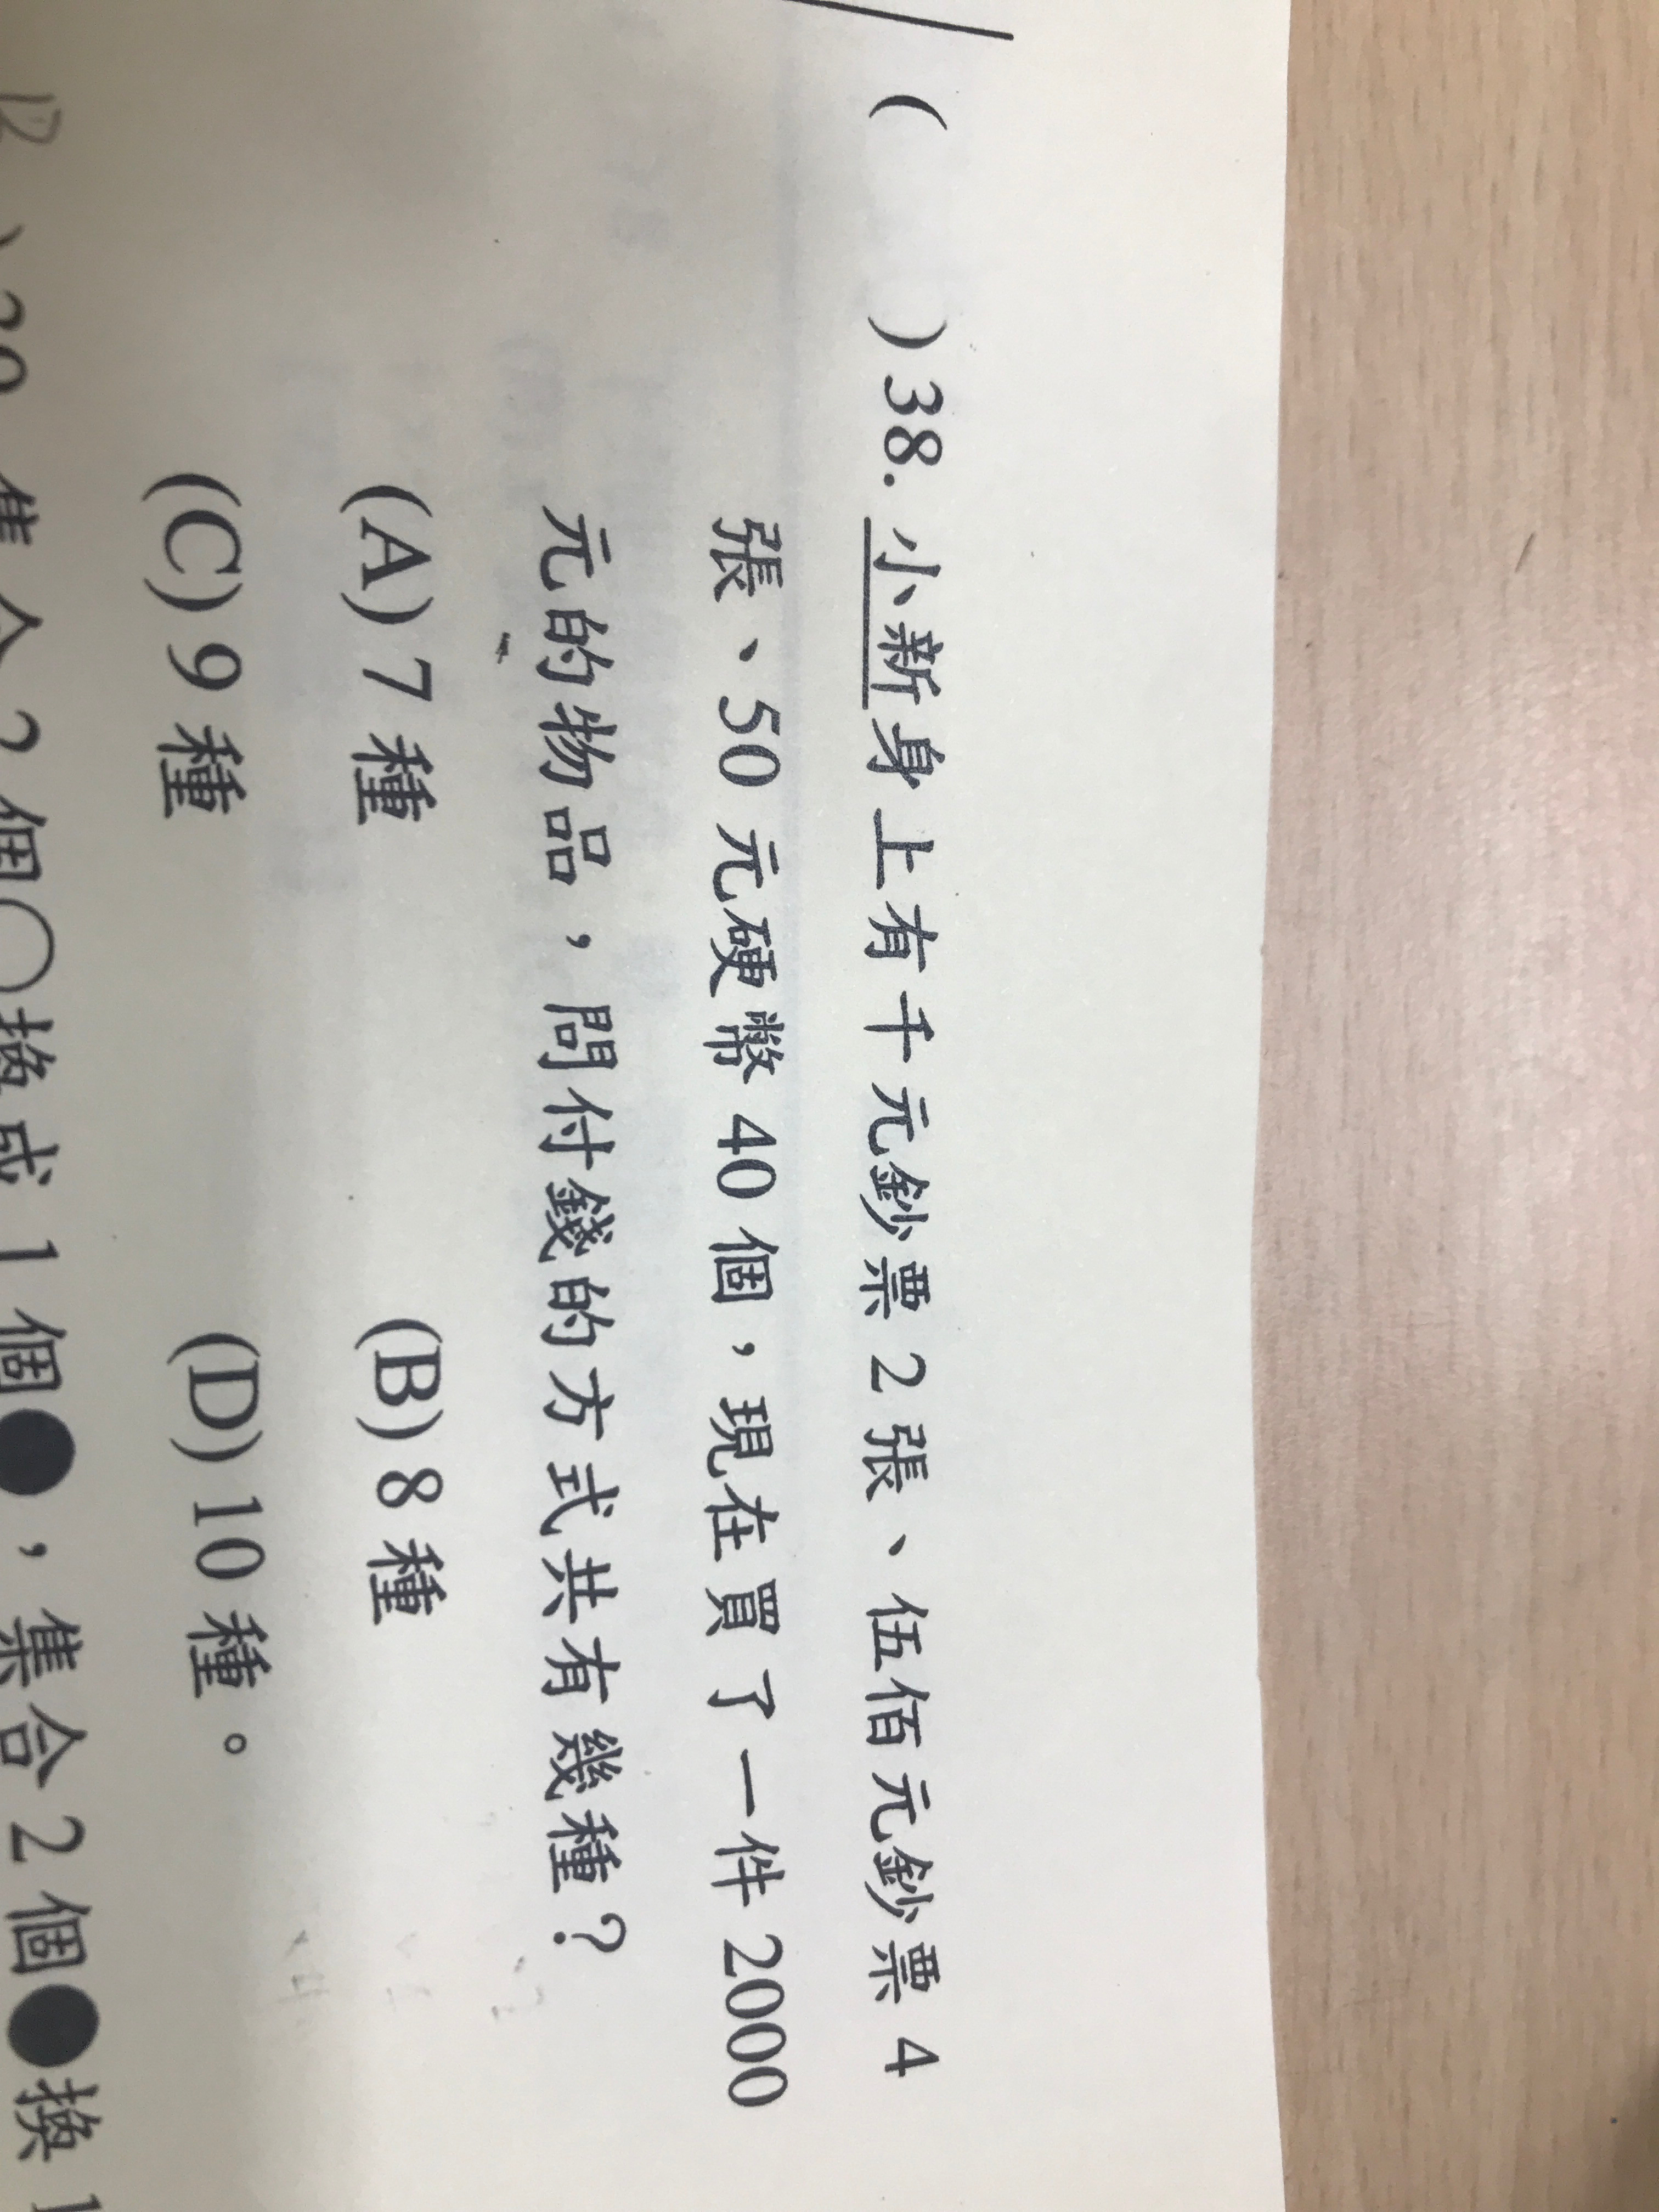 (　　) 38. 小新身上有千元鈔票 2 張、伍佰元鈔票 4
張、50 元硬幣 40 個，現在買了一件 2000
元的物品，問付錢的方式共有幾種？
(A) 7 種　　(B) 8 種
(C) 9 種　　(D) 10 種。
集合 2 個○換成 1 個●，集合 2 個●換 1